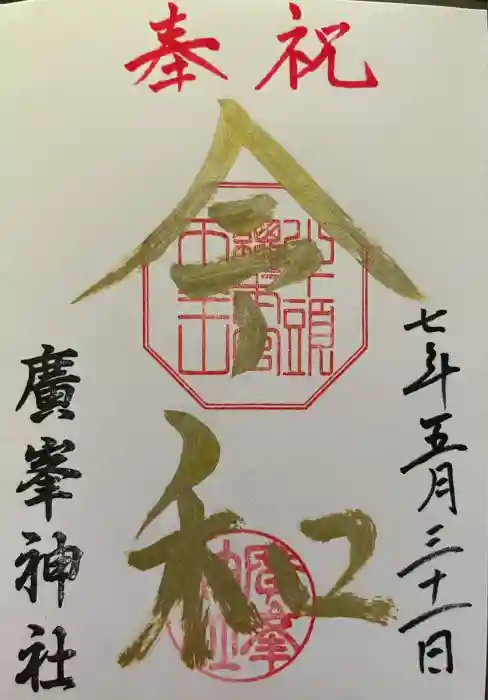 奉祝
令和
七年五月三十一日
廣峯神社
牛頭
天王